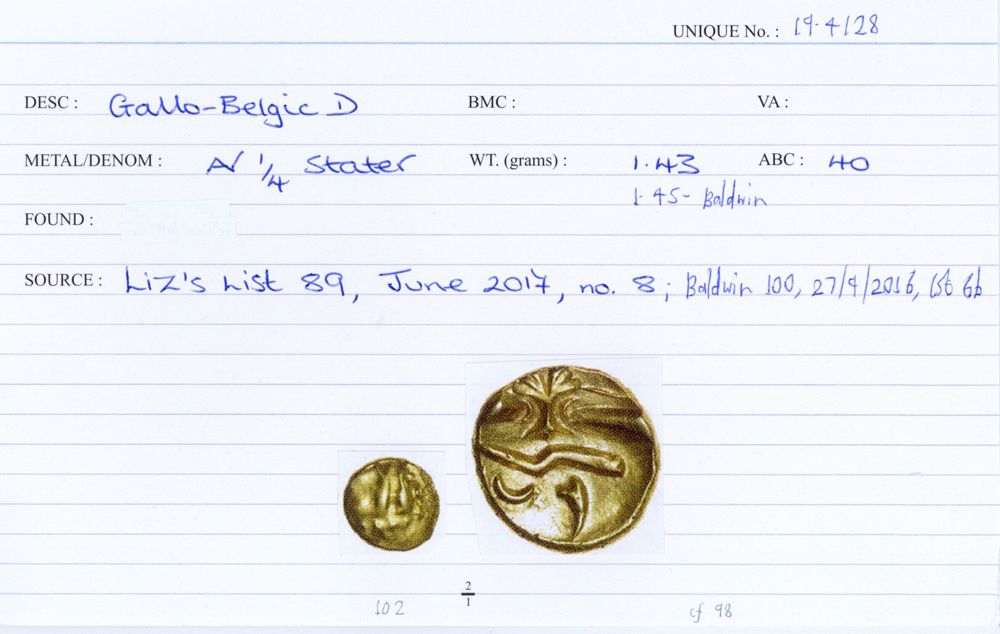 UNIQUE No. : 19.4128
DESC : Gallo-Belgic D BMC : VA :
METAL/DENOM : AV 1/4 Stater WT. (grams) : 1.43 ABC : 40
1.45- Baldwin
FOUND :
SOURCE : Liz's List 89, June 2017, no. 8; Baldwin 100, 27/9/2016, lot 66
2
1
102 cf 98